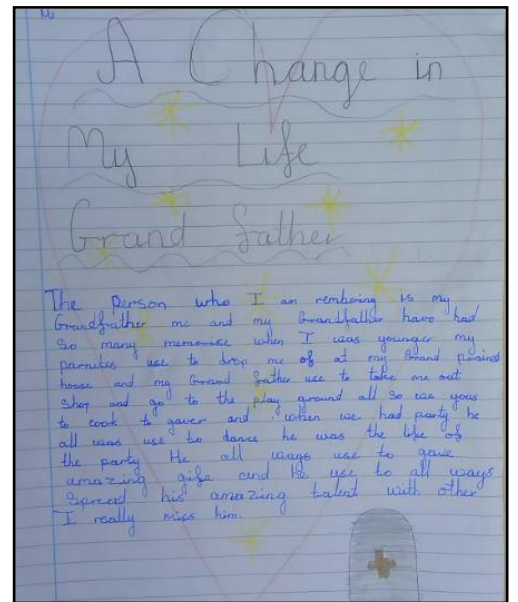 A Change in
My Life
Grand father
The person who I am rembering is my
Grandfrather me and my Grandfather have had
So many memorise when I was younger my
parnites use to drop me of at my Grand
house and my Grand father use to take me out
Shop and go to the play ground all so we yous
to cook to gaver and when we had party he
all was use to dance he was the life of
the party He all ways use to gave
amazing gifs and he use to all ways
Spread his amazing talent with other
I really miss him.